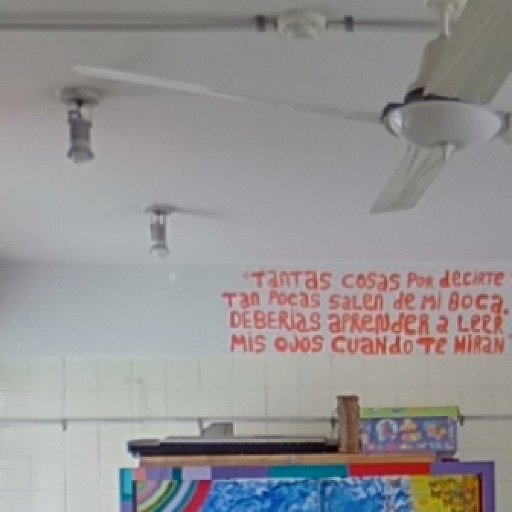 "TANTAS COSAS POR decIRTE
TAN POCAS SALEN de MI BOCA.
DEBERIAS APRENDER A LEER
MIS OJOS CUANDO TE MIRAN"